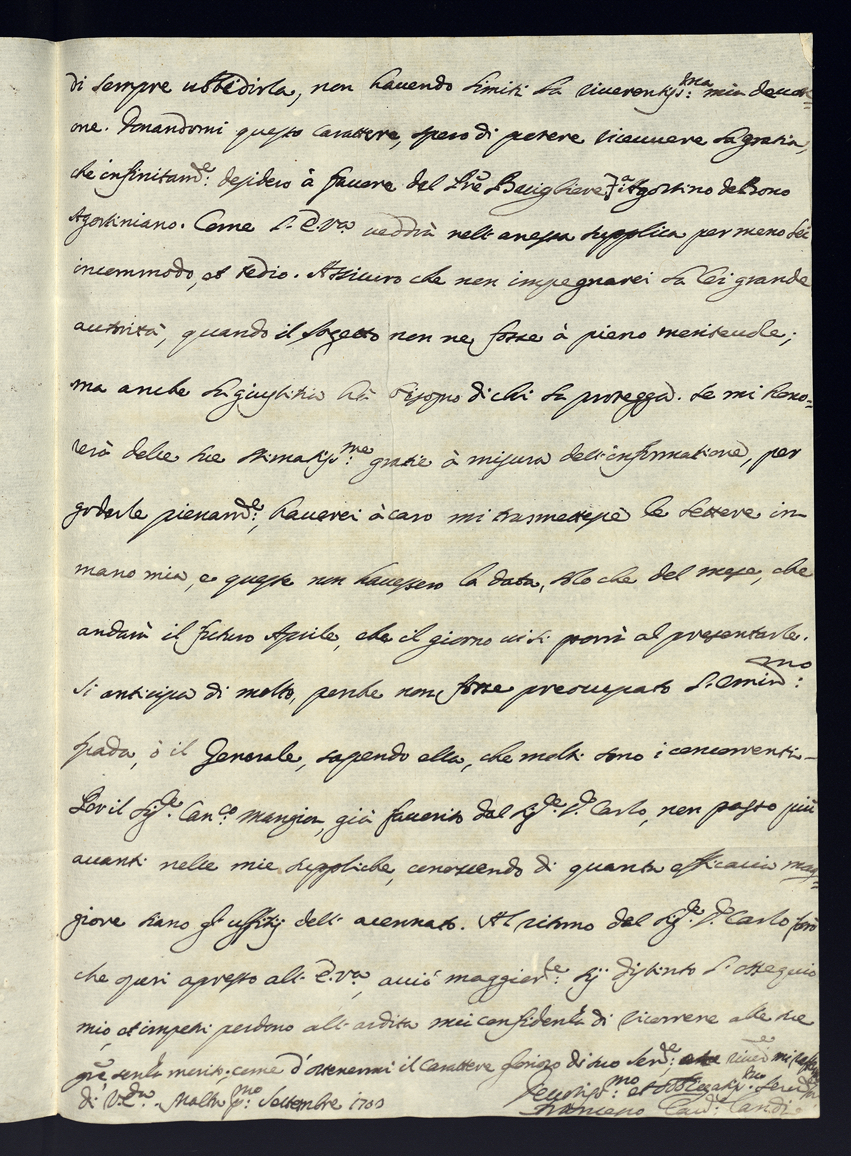 di sempre ubbidirla, non havendo limiti la riverentiss:ma mia devot=
one. Donandomi questo carattere, spero di potere ricevere la gratia,
che infinitam:e desidero à favore del Pre Bacigliere Agostino de Bono
Agostiniano. Come l'E.Va vedrà nell'anessa supplica per meno lei
incommodo, et tedio. Assicuro che non impegnarei la lei grande
autorità, quando il sogetto non ne fosse à pieno meritevole;
ma anche la giustitia hà bisogno di chi la protegga. Se mi hono=
rerà delle sue stimatiss:me gratie à misura dell'informatione, per
goderle pienam:e, haverei à caro mi trasmettesse le lettere in
mano mia, e queste non havessero la data, solo che del mese, che
andarà il futuro Aprile, che il giorno vi si porrà al presentarle.
Si anticipa di molto, perche non fosse preocupato l'Emin:mo
Spada, ò il Generale, sapendo ella, che molti sono i concorrenti.
Per il Sig:re Can:co Mangion, già favorito dal Sig:re D. Carlo, non passo più
avanti nelle mie suppliche, conoscendo di quanta efficacia mag=
giore siano gl'uffitij dell'acennato. Al ritorno del Sig:re D. Carlo farò
che operi apresso all'E.Va, acciò maggiorm:te sij distinto l'ossequio
mio, et impetri perdono all'ardita mia confidenza di ricorrere alle sue
gratie senza merito; come d'ottenermi il carattere glorioso di suo Ser:re
di V.E. Malta p:mo Settembre 1703
Devotiss:mo et Obligatiss:mo
Francesco